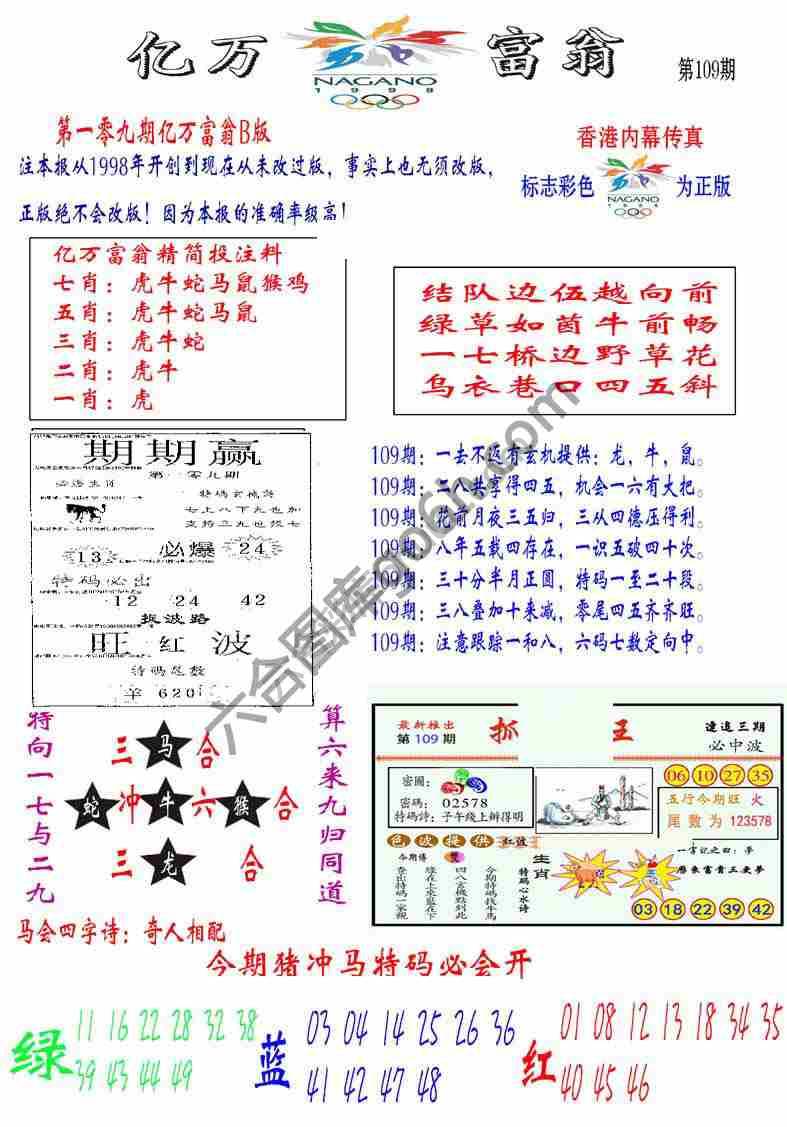 亿万
NAGANO
1998
富翁
第109期
第一零九期亿万富翁B版
注本报从1998年开创到现在从未改过版，事实上也无须改版，
正版绝不会改版！因为本报的准确率级高！
香港内幕传真
标志彩色
NAGANO
1998
为正版
亿万富翁精简投注料
七肖：虎牛蛇马鼠猴鸡
五肖：虎牛蛇马鼠
三肖：虎牛蛇
二肖：虎牛
一肖：虎
结队边伍越向前
绿草如茵牛前畅
一七桥边野草花
乌衣巷口四五斜
期期赢
第一零九期
七上八下九也加
支持三九也须七
必爆
13
24
特码必出
12 24 42
捉波路
旺红波
特码总数
羊 620
109期：一去不返有玄机提供：龙，牛，鼠。
109期：二八共享得四五，机会一六有大把。
109期：花前月夜三五归，三从四德压得利。
109期：八年五载四存在，一识五破四十次。
109期：三十分半月正圆，特码一至二十段。
109期：三八叠加十来减，零尾四五齐齐旺。
109期：注意跟踪一和八，六码七数定向中。
特向一七与二九
三马合
蛇冲牛六猴合
三龙合
算六来九归同道
最新推出
第109期
抓
王
连追三期
必中波
密圖：
密碼：02578
特碼詩：子午线上辨得明
06 10 27 35
五行今期旺 火
尾數为 123578
色波提供 红波
一字记之曰：夢
歷來富貴三更夢
今期博
生肖
特码心水诗
今期特码找牛馬
四八玄機點到此
緣在上來區在下
查出特码一家親
03 18 22 39 42
马会四字诗：奇人相配
今期猪冲马特码必会开
绿
11 16 22 28 32 38
39 43 44 49
蓝
03 04 14 25 26 36
41 42 47 48
红
01 08 12 13 18 34 35
40 45 46
六合图库go6h.com